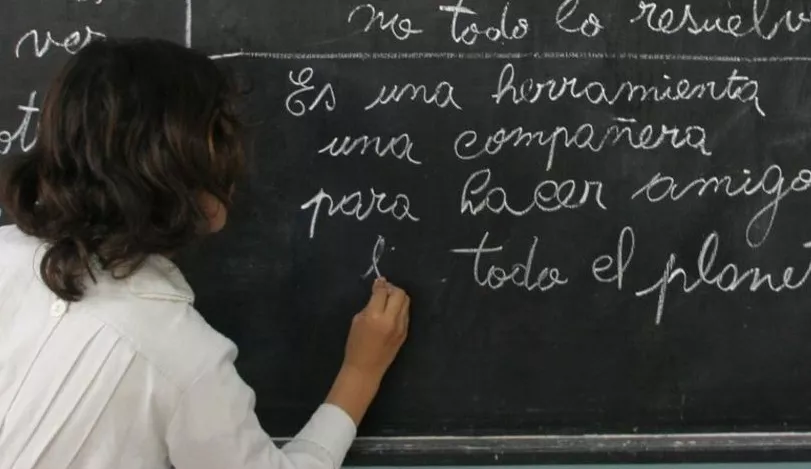 ver
no todo lo
Es una herramienta
una compañera
para hacer amigo
todo el planet